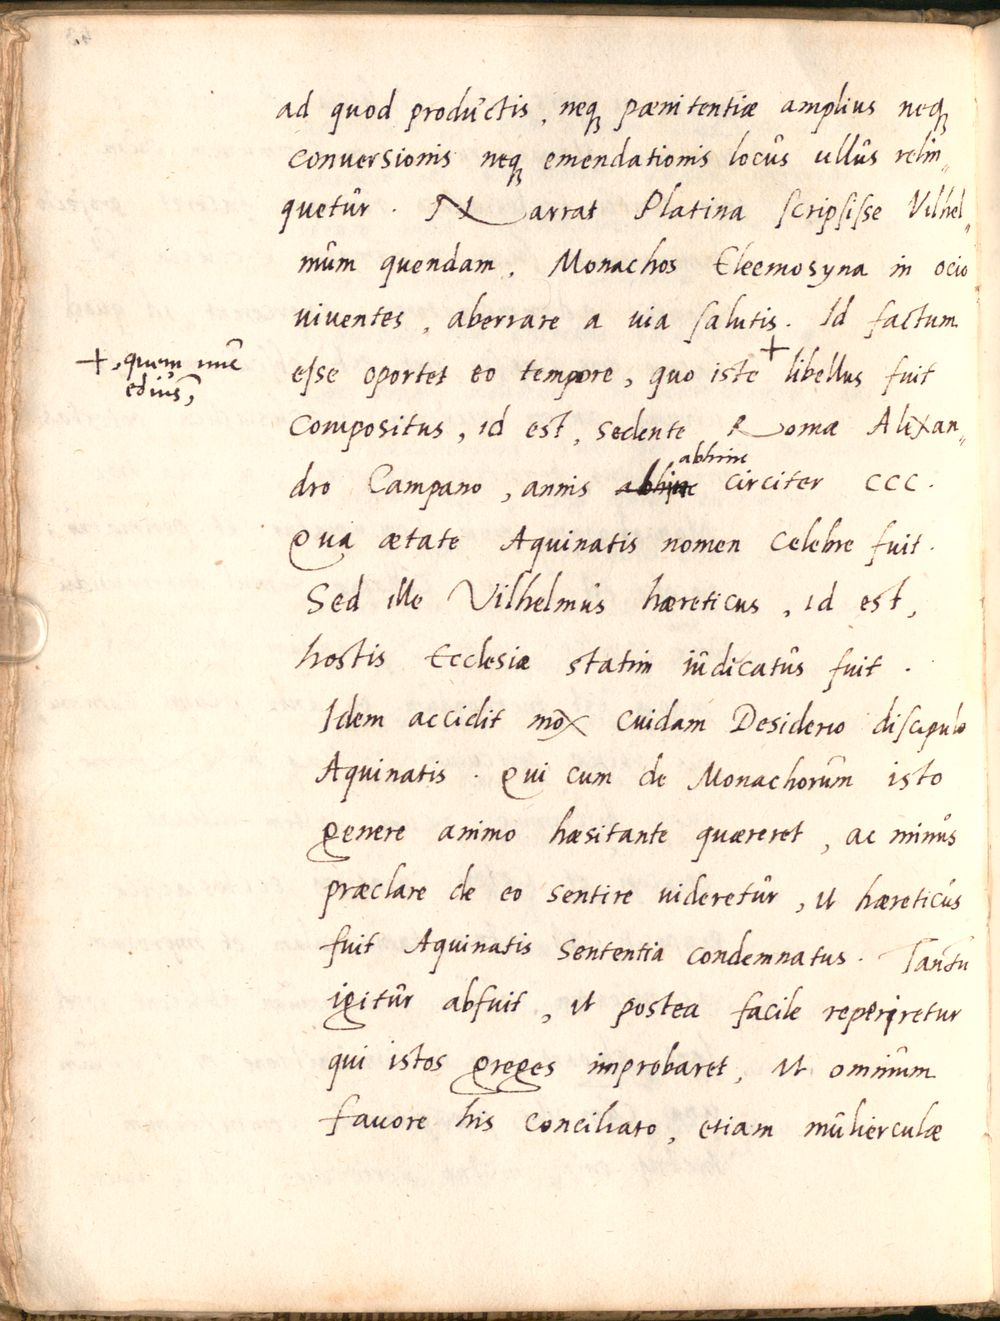 ad quod productis, neq₃ pænitentiæ amplius neq₃
conversionis neq₃ emendationis locus ullus relin„
quetur. Narrat Platina scripsisse Vilhel„
mum quendam, Monachos Eleemosyna in ocio
uiuentes, aberrare a uia salutis. Id factum
+, quem nũc
edim͂s,
esse oportet eo tempore, quo iste + libellus fuit
Compositus, id est, sedente Romæ Alexan„
abhinc
dro Campano, annis abhinc circiter CCC.
Qua ætate Aquinatis nomen celebre fuit.
Sed ille Vilhelmus hæreticus, id est,
hostis Ecclesiæ statim iudicatus fuit.
Idem accidit mox cuidam Desiderio discipulo
Aquinatis. Qui cum de Monachorum isto
genere animo hæsitante quæreret, ac minus
præclare de eo sentire uideretur, ut hæreticus
fuit Aquinatis sententia condemnatus. Tantũ
igitur abfuit, ut postea facile reperiretur
qui istos greges improbaret, ut omnium
favore his conciliato, etiam mulierculæ